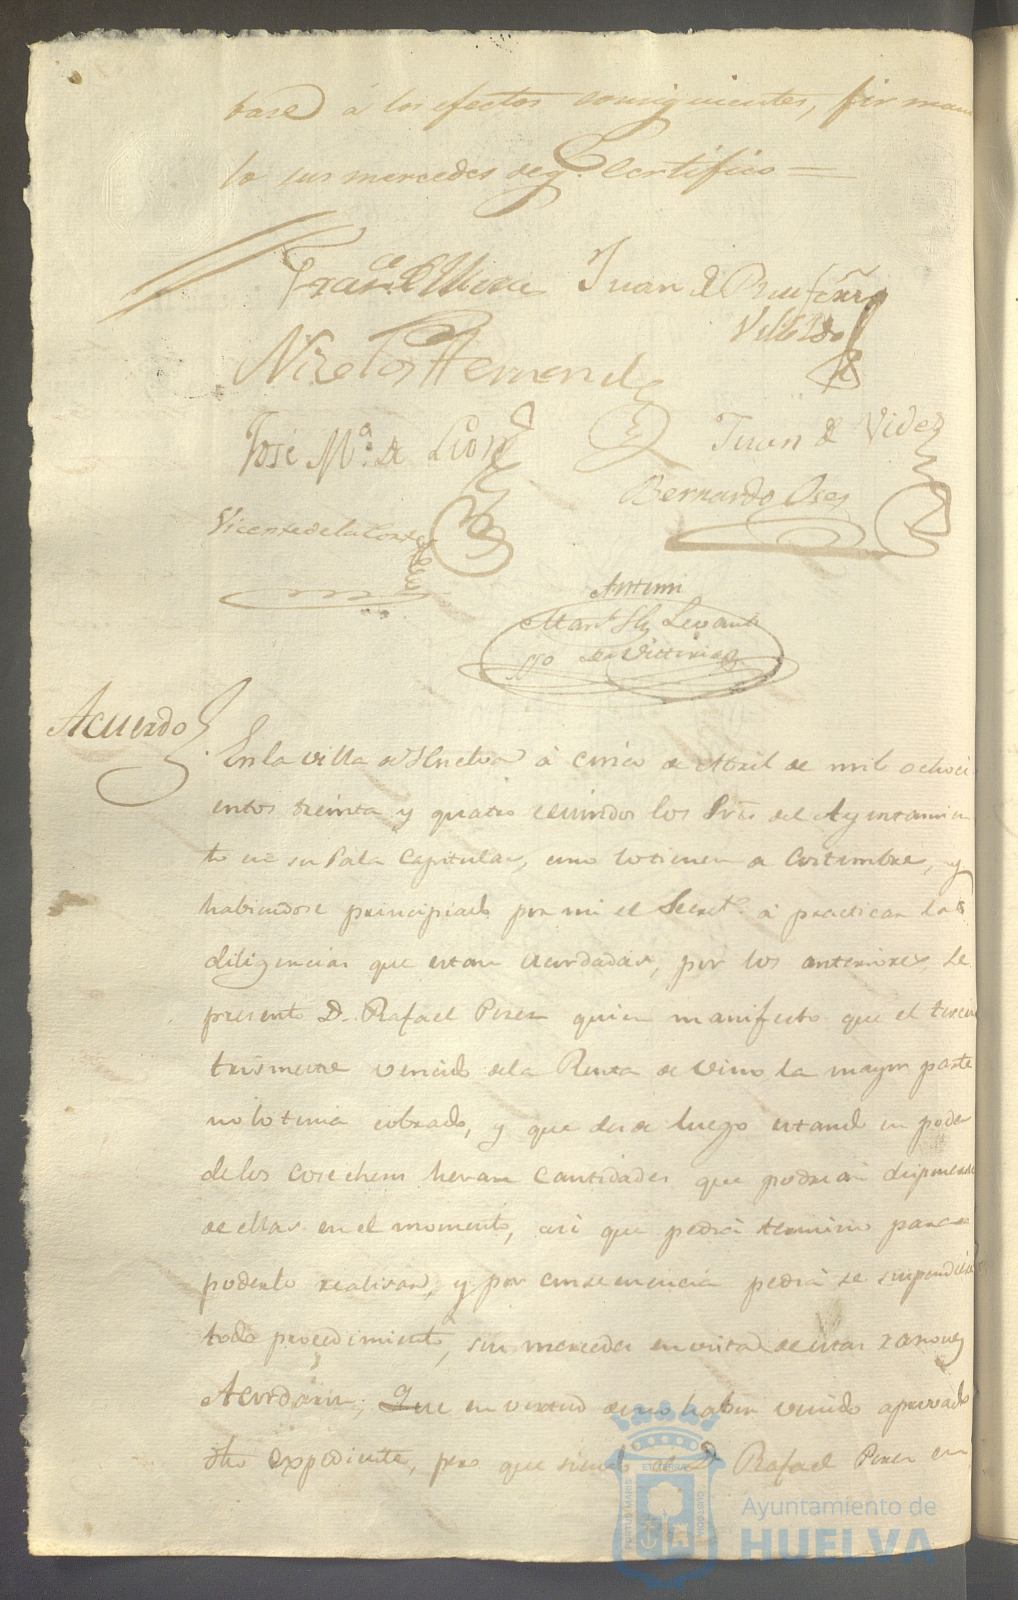 tase á los efectos consiguientes, firman
lo sus mercedes deq. Certifico =
Juan de
Nicolas Hernand
José Mª de Leon
Juan de Videz
Bernardo
Vicente de la Corte
Antemi
Acuerdo
En la villa de Huelva á cinco de Abril de mil ochoci
entos treinta y quatro reunidos los Sres del Ayuntamien
to en su Sala Capitular, como lo tienen de Costumbre, y
habiendose principiado por mi el Secretº á practicar las
diligencias que estan acordadas, por los anteriores, se
presento D. Rafael Perez quien manifesto que el tercer
trimestre vencido dela Renta de Vino la mayor parte
no lo tenia cobrado, y que desde luego estando en poder
de los Cosecheros heran Cantidades que podrian disponerse
de ellas en el momento, asi que pedia termino para
poderlo realisar, y por consecuencia pedia se suspendiese
todo procedimiento, sus mercedes en vista de estas razones
Acordaron; Que en virtud de no haber venido aprovado
dho expediente, pero que siendo el D. Rafael Perez en
PORTUS MARIS ET TERRAE CUSTODIA
Ayuntamiento de
HUELVA